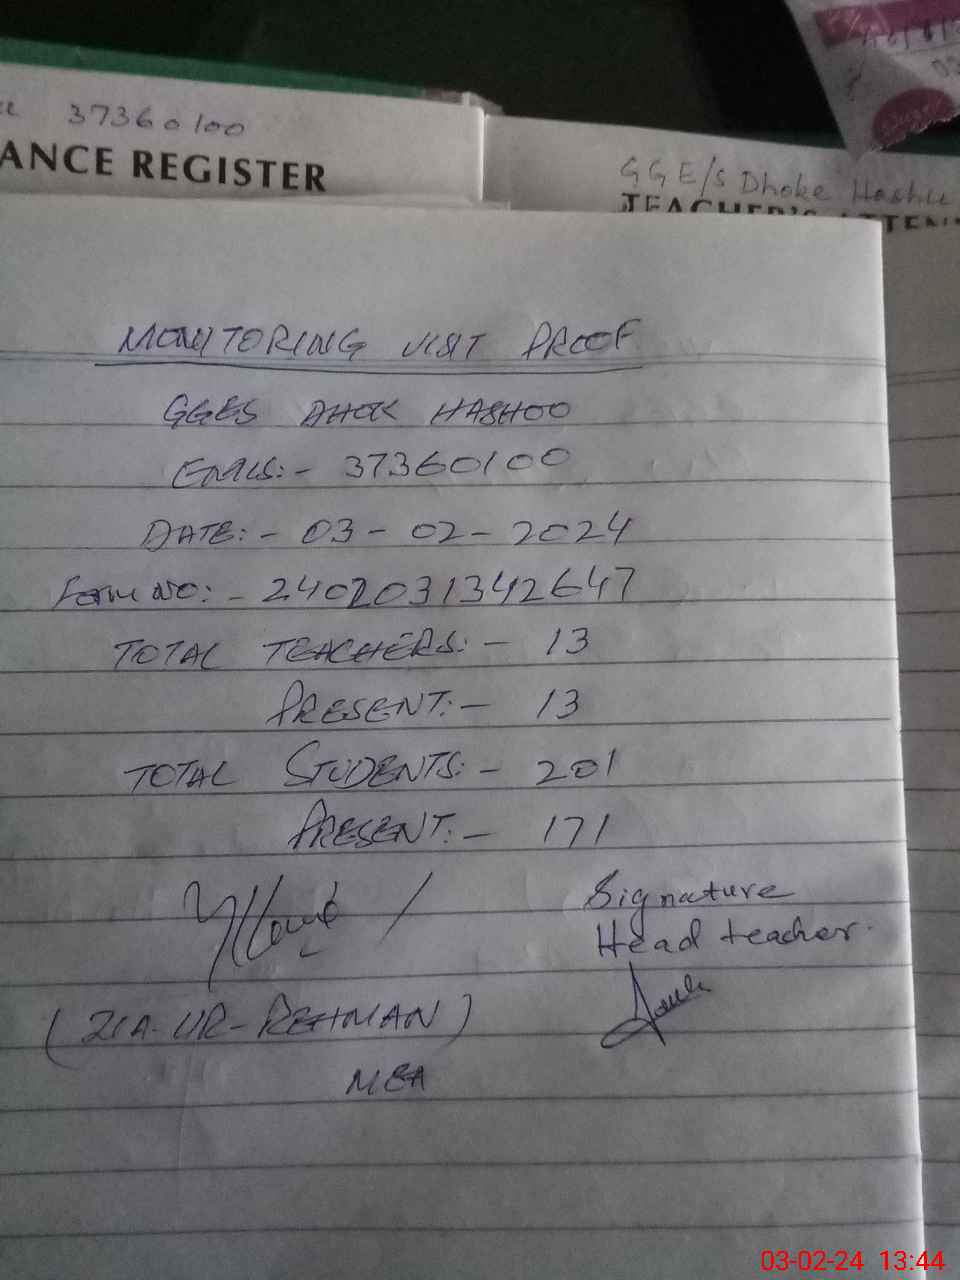 37360100
ANCE REGISTER
GGE/S Dhoke Hashu
TEACHER'S ATTEN
MONITORING VISIT PROOF
GGES DHOK HASHOO
EMIS:- 37360100
DATE:- 03-02-2024
Form NO:- 2402031342647
TOTAL TEACHERS:- 13
PRESENT:- 13
TOTAL STUDENTS:- 201
PRESENT:- 171
Signature
Head teacher.
(ZIA-UR-REHMAN)
MEA
03-02-24 13:44